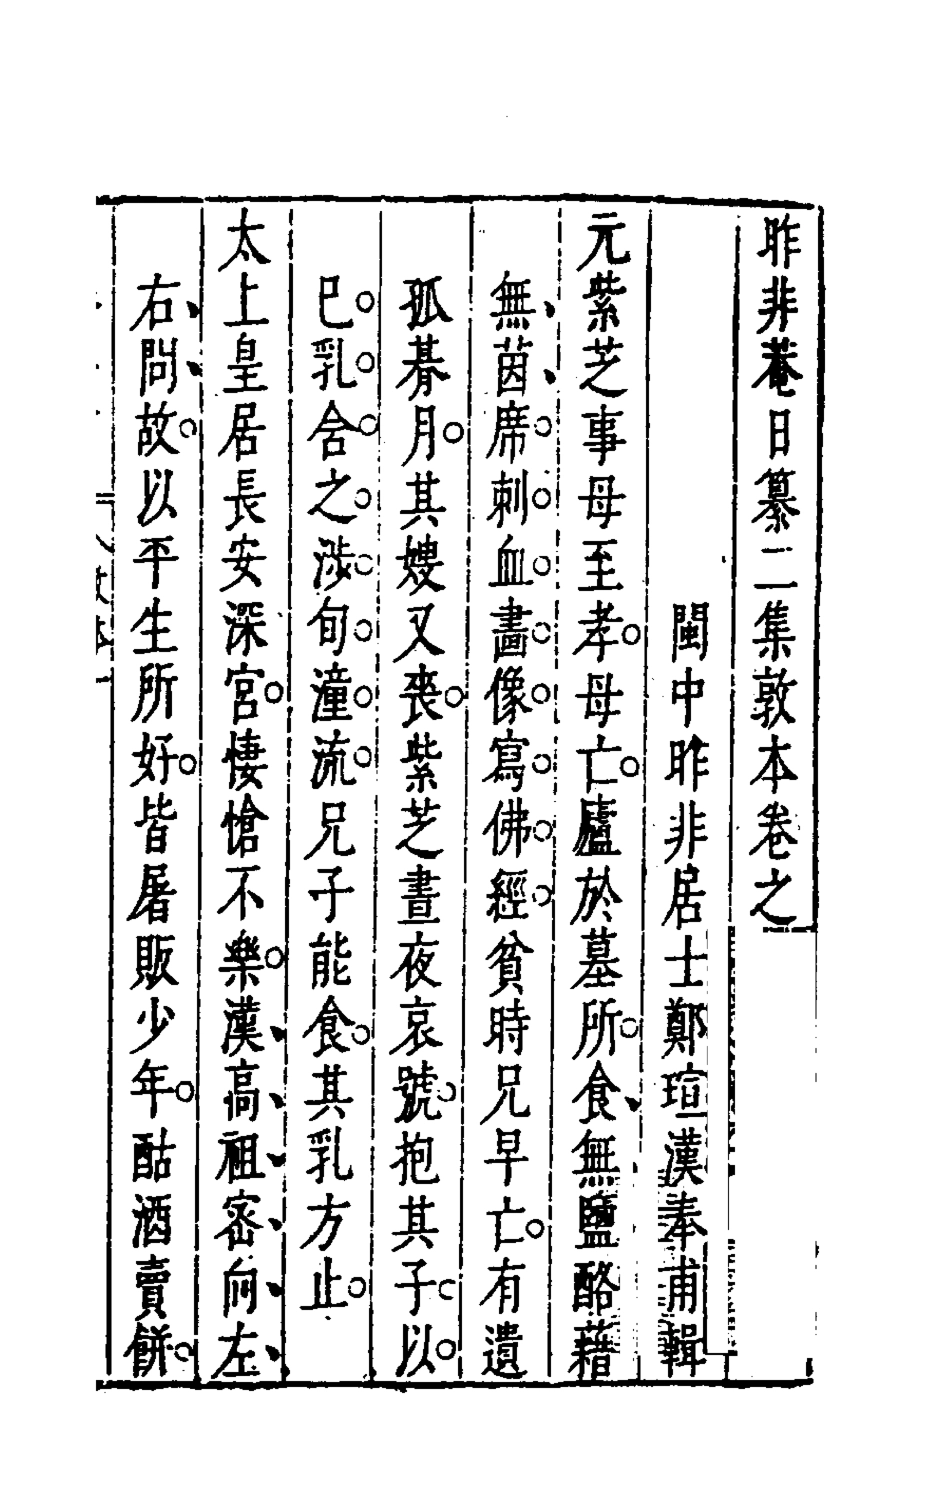 昨非菴日纂二集敦本卷之
閩中昨非居士鄭瑄漢奉甫輯
元紫芝事母至孝。母亡。廬於墓所。食、無鹽酪藉
無、茵、席。刺。血。畫。像。寫。佛。經。貧時兄早亡。有遺
孤朞月。其嫂又喪。紫芝晝夜哀號。抱其子。以。
巳。乳。含。之。涉。旬。湩。流。兄子能食。其乳方止。
太上皇居長安深宮。悽愴不樂。漢、高、祖、密、向、左、
右、問、故。以平生所好。皆屠販少年。酤酒賣餅。